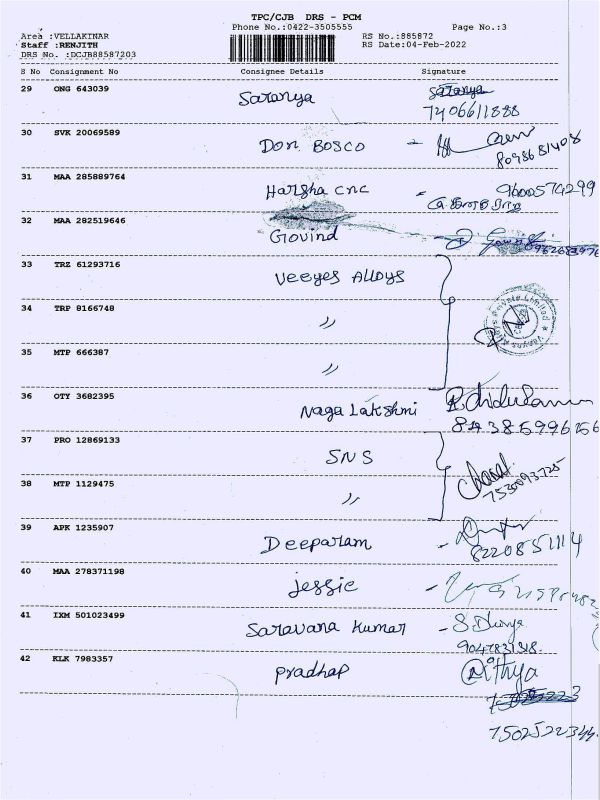 TPC/CJB DRS - PCM
Phone No.:0422-3505555 Page No.:3
Area :VELLAKINAR RS No.:885872
Staff :RENJITH RS Date:04-Feb-2022
DRS No. :DCJB88587203
S No Consignment No Consignee Details Signature
29 ONG 643039 Saranya Saranya
7406611888
30 SVK 20069589 Don Bosco -
8098681408
31 MAA 285889764 Harsha cnc - 9600574299
32 MAA 282519646 Govind
33 TRZ 61293716 Veeyes Alloys
34 TRP 8166748 〃
35 MTP 666387 〃
36 OTY 3682395 Naga Lakshmi
37 PRO 12869133 SNS
38 MTP 1129475 〃
7530093725
39 APK 1235907 Deeparam -
8220851114
40 MAA 278371198 Jessie -
41 IXM 501023499 Saravana Kumar - S Divya
9047831318
42 KLK 7983357 Pradhap Nithya
7502522344